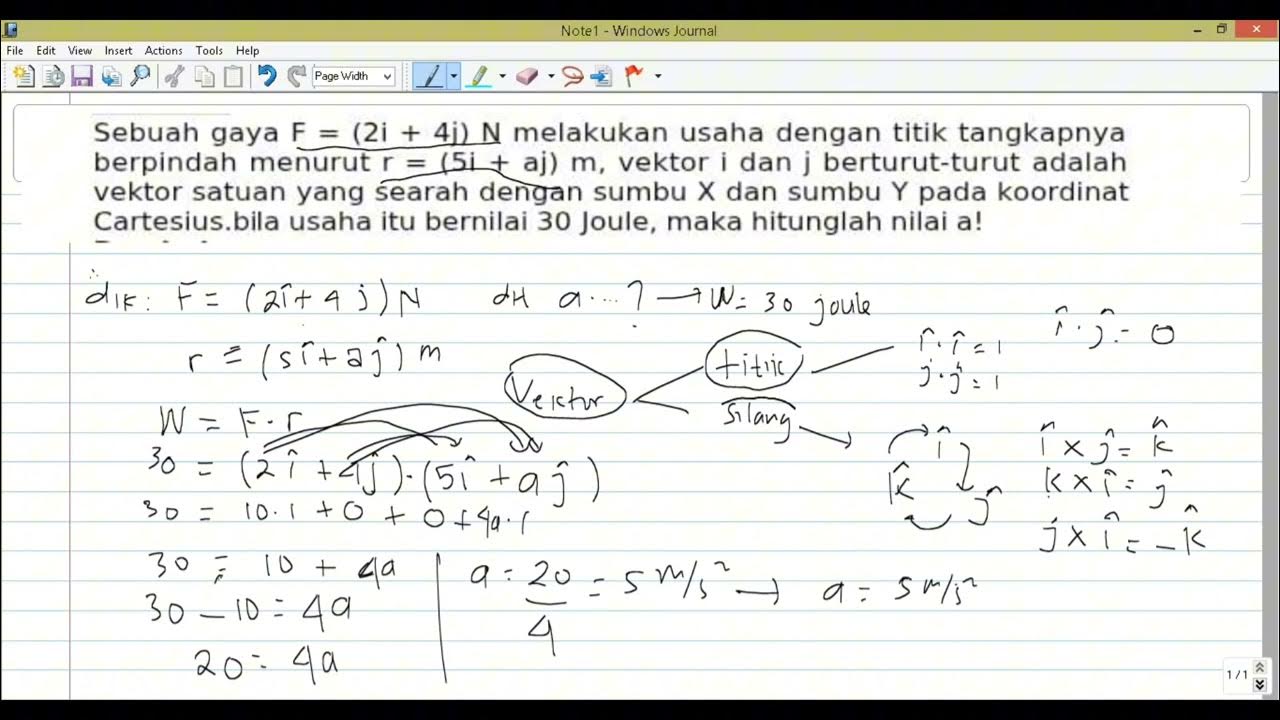 Note1 - Windows Journal
File Edit View Insert Actions Tools Help
Page Width
Sebuah gaya F = (2i + 4j) N melakukan usaha dengan titik tangkapnya
berpindah menurut r = (5i + aj) m, vektor i dan j berturut-turut adalah
vektor satuan yang searah dengan sumbu X dan sumbu Y pada koordinat
Cartesius.bila usaha itu bernilai 30 Joule, maka hitunglah nilai a!
dik: F = (2î + 4 ĵ) N dit a....? → W = 30 joule
r = (5î + aĵ) m
Vektor
titik
î · î = 1
ĵ · ĵ = 1
î · ĵ = 0
silang
î
k̂
ĵ
î × ĵ = k̂
k × î = ĵ
j × î = -k̂
W = F · r
30 = (2î + 4ĵ) · (5î + aĵ)
30 = 10.1 + 0 + 0 + 4a.1
30 = 10 + 4a
30 - 10 = 4a
20 = 4a
a = 20/4 = 5 m/s² → a = 5 m/s²
1/1